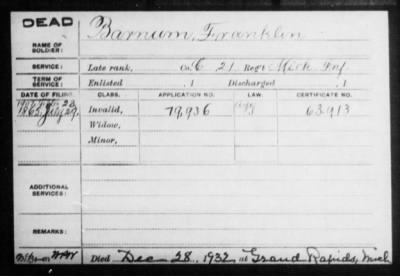 DEAD
NAME OF SOLDIER: Barnum, Franklin
SERVICE: Late rank, Co. C 21 Reg't Mich Inf
TERM OF SERVICE: Enlisted , 1 Discharged , 1
DATE OF FILING. CLASS. APPLICATION NO. LAW. CERTIFICATE NO.
1865 July 29 Invalid, 79,936 63,913
Widow,
Minor,
ADDITIONAL SERVICES:
REMARKS:
Died Dec 28, 1932 at Grand Rapids, Mich